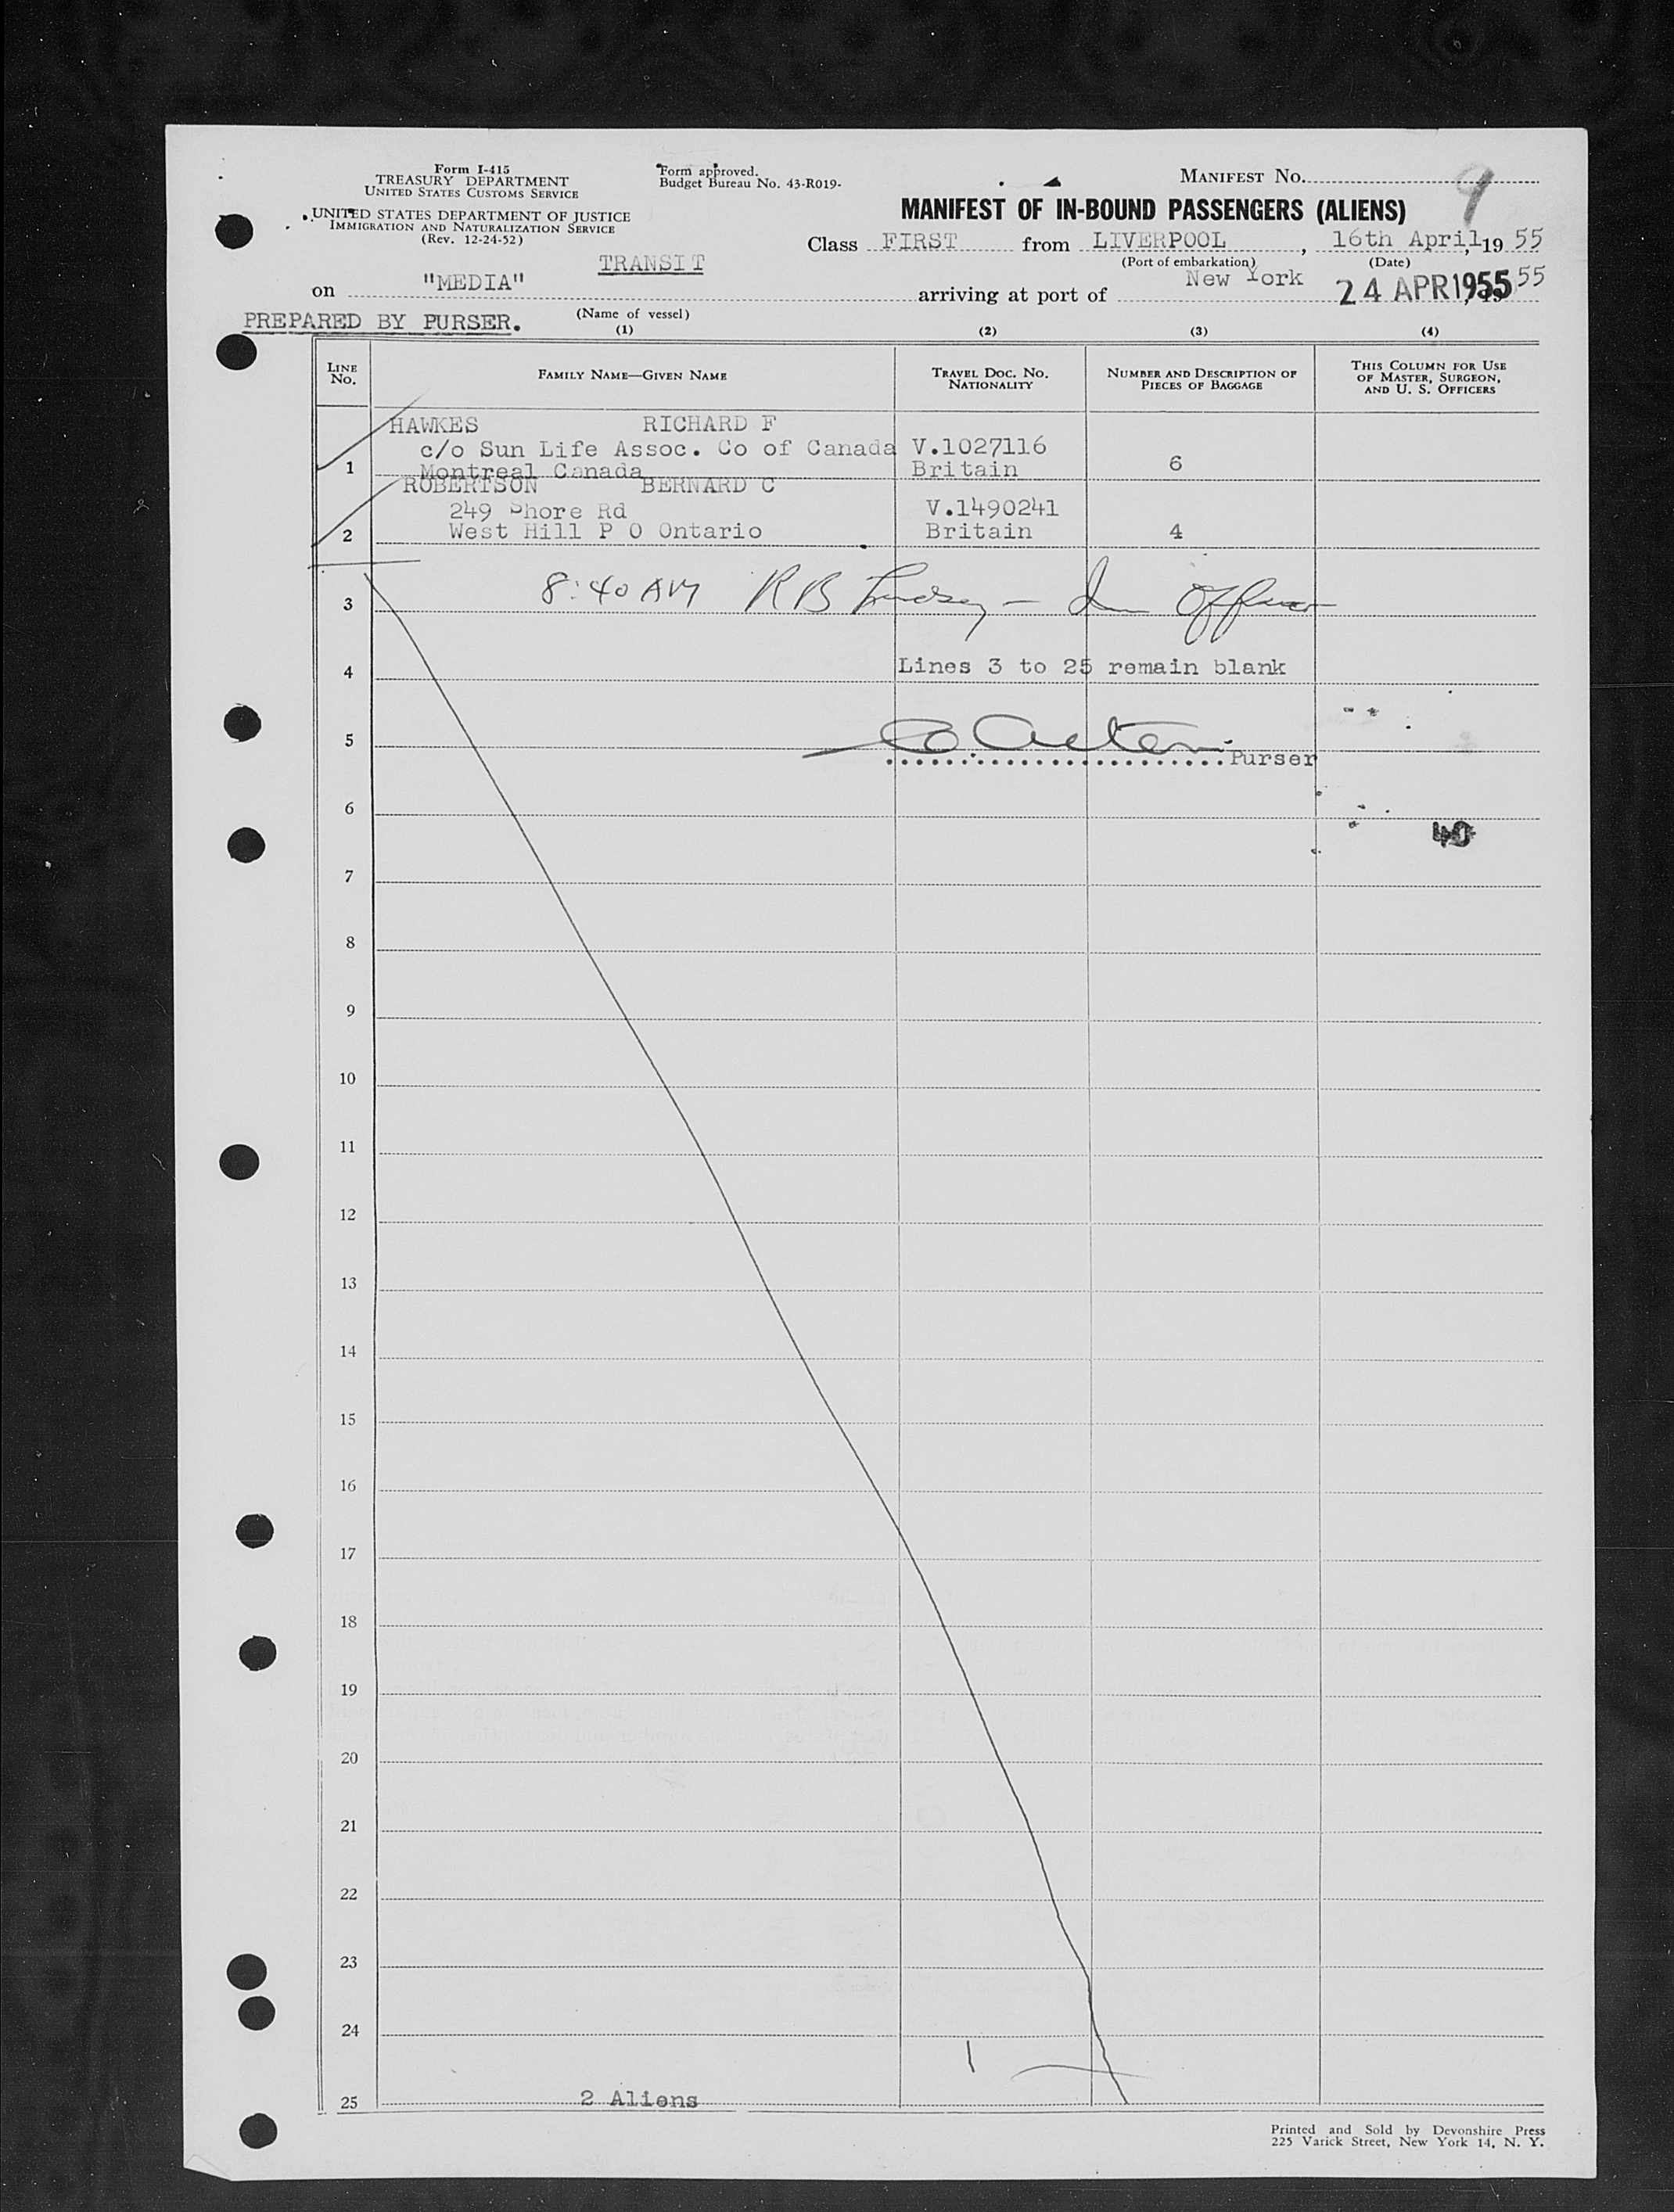 Form I-415
TREASURY DEPARTMENT
UNITED STATES CUSTOMS SERVICE
UNITED STATES DEPARTMENT OF JUSTICE
IMMIGRATION AND NATURALIZATION SERVICE
(Rev. 12-24-52)
Form approved.
Budget Bureau No. 43-R019-
MANIFEST NO. 9
MANIFEST OF IN-BOUND PASSENGERS (ALIENS)
Class FIRST from LIVERPOOL, 16th April, 19 55
(Port of embarkation) (Date)
TRANSIT
on "MEDIA" arriving at port of New York 24 APR 1955 55
(Name of vessel)
PREPARED BY PURSER.
(1) (2) (3) (4)
LINE NO. FAMILY NAME—GIVEN NAME TRAVEL DOC. NO. NATIONALITY NUMBER AND DESCRIPTION OF PIECES OF BAGGAGE THIS COLUMN FOR USE OF MASTER, SURGEON, AND U. S. OFFICERS
HAWKES RICHARD F
c/o Sun Life Assoc. Co of Canada V.1027116
1 Montreal Canada Britain 6
ROBERTSON BERNARD C
249 Shore Rd V.1490241
2 West Hill P O Ontario Britain 4
3 8:40 AM R B Lindsey - Im Officer
4 Lines 3 to 25 remain blank
5 Purser
6
40
7
8
9
10
11
12
13
14
15
16
17
18
19
20
21
22
23
24
25 2 Aliens
Printed and Sold by Devonshire Press
225 Varick Street, New York 14, N. Y.